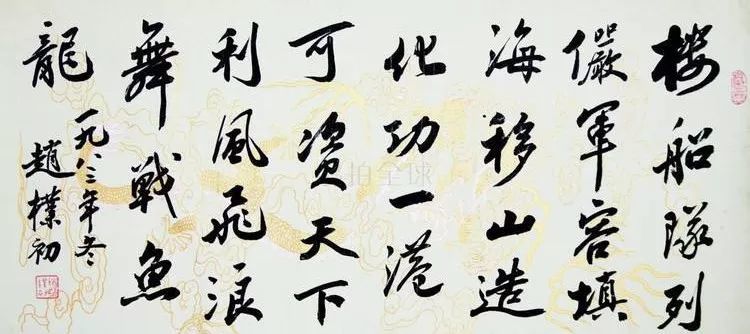 樓船隊列
儼軍容填
海移山造
化功一港
可資天下
利風飛浪
舞戰魚
龍
一九八三年冬
趙樸初
拍全球